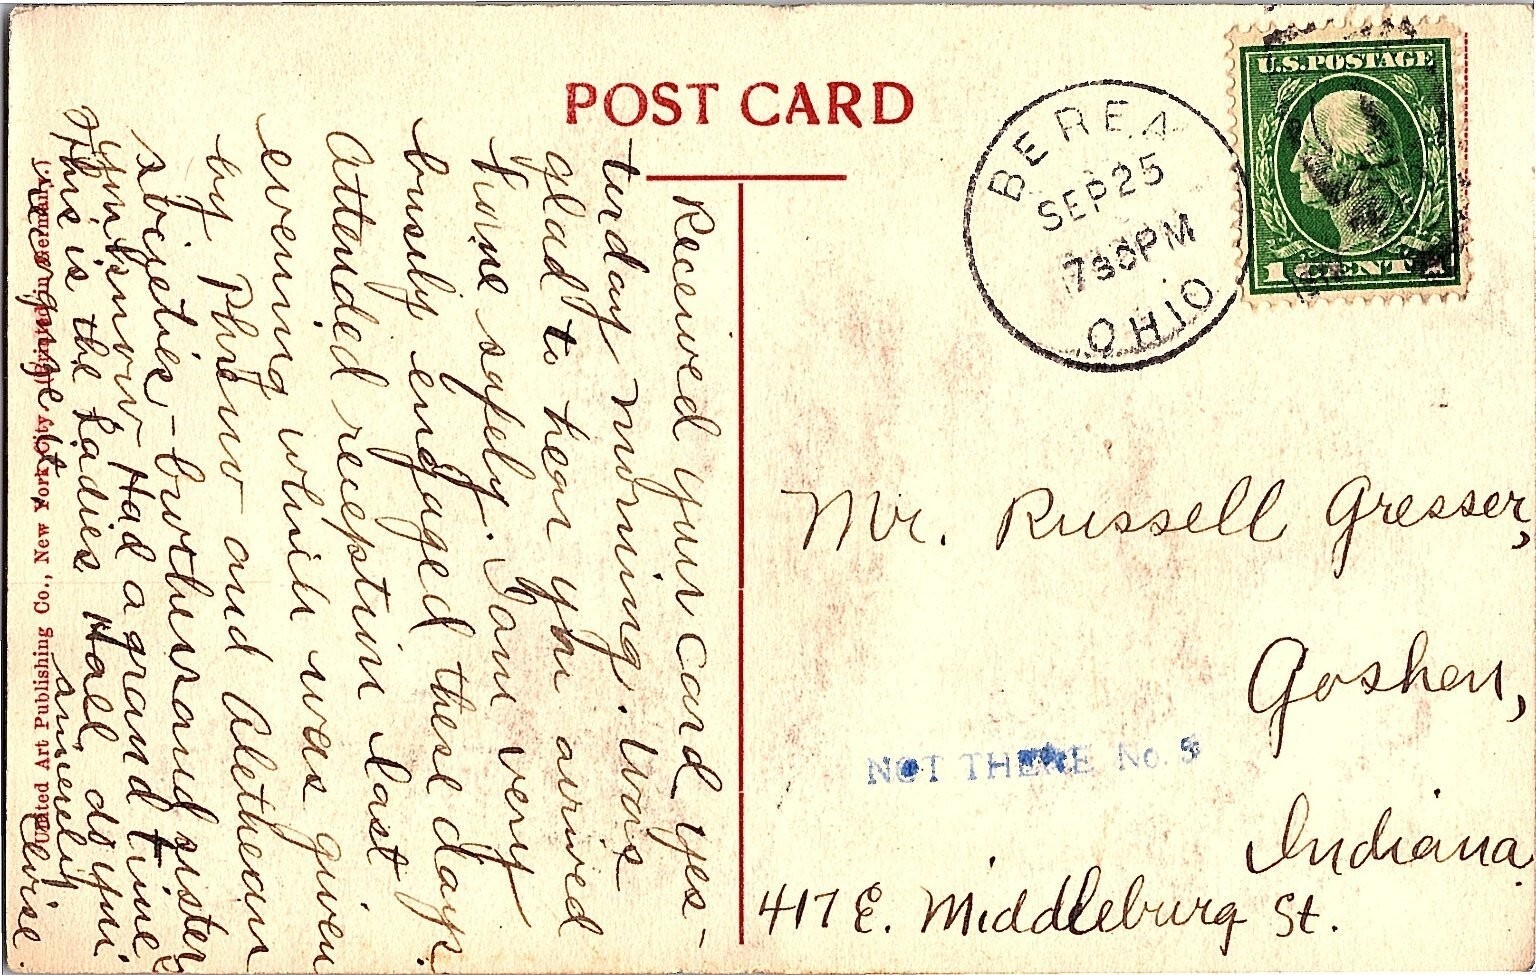 POST CARD
BEREA
SEP 25
730PM
OHIO
U.S. POSTAGE
1 CENT 1
Received your card yes-
terday morning. Was
glad to hear you arrived
home safely. I am very
busily engaged these days.
Attended reception last
evening which was given
by Phrino and Alethean
societies - brother and sister
you know. Had a grand time
This is the Ladies Hall, do you
recognize it.
Sincerely
Elvise.
Mr. Russell Gresser,
Goshen,
Indiana
417 E. Middleburg St.
NOT THERE No. 5
United Art Publishing Co., New York City (Printed in Germany.)